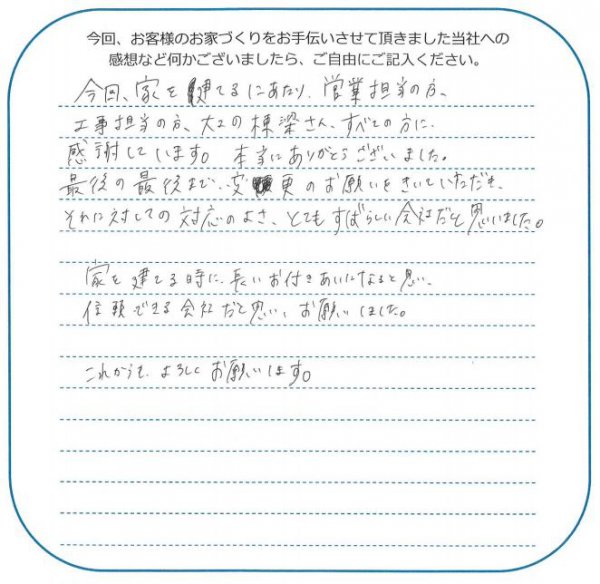 今回、お客様のお家づくりをお手伝いさせて頂きました当社への
感想など何かございましたら、ご自由にご記入ください。
今回、家を建てるにあたり、営業担当の方、
工事担当の方、大工の棟梁さん、すべての方に、
感謝しています。本当にありがとうございました。
最後の最後まで、変更のお願いをきいていただき、
それに対しての対応のよさ、とてもすばらしい会社だと思いました。
家を建てる時に、長いお付きあいになると思い、
信頼できる会社だと思い、お願いしました。
これからも、よろしくお願いします。